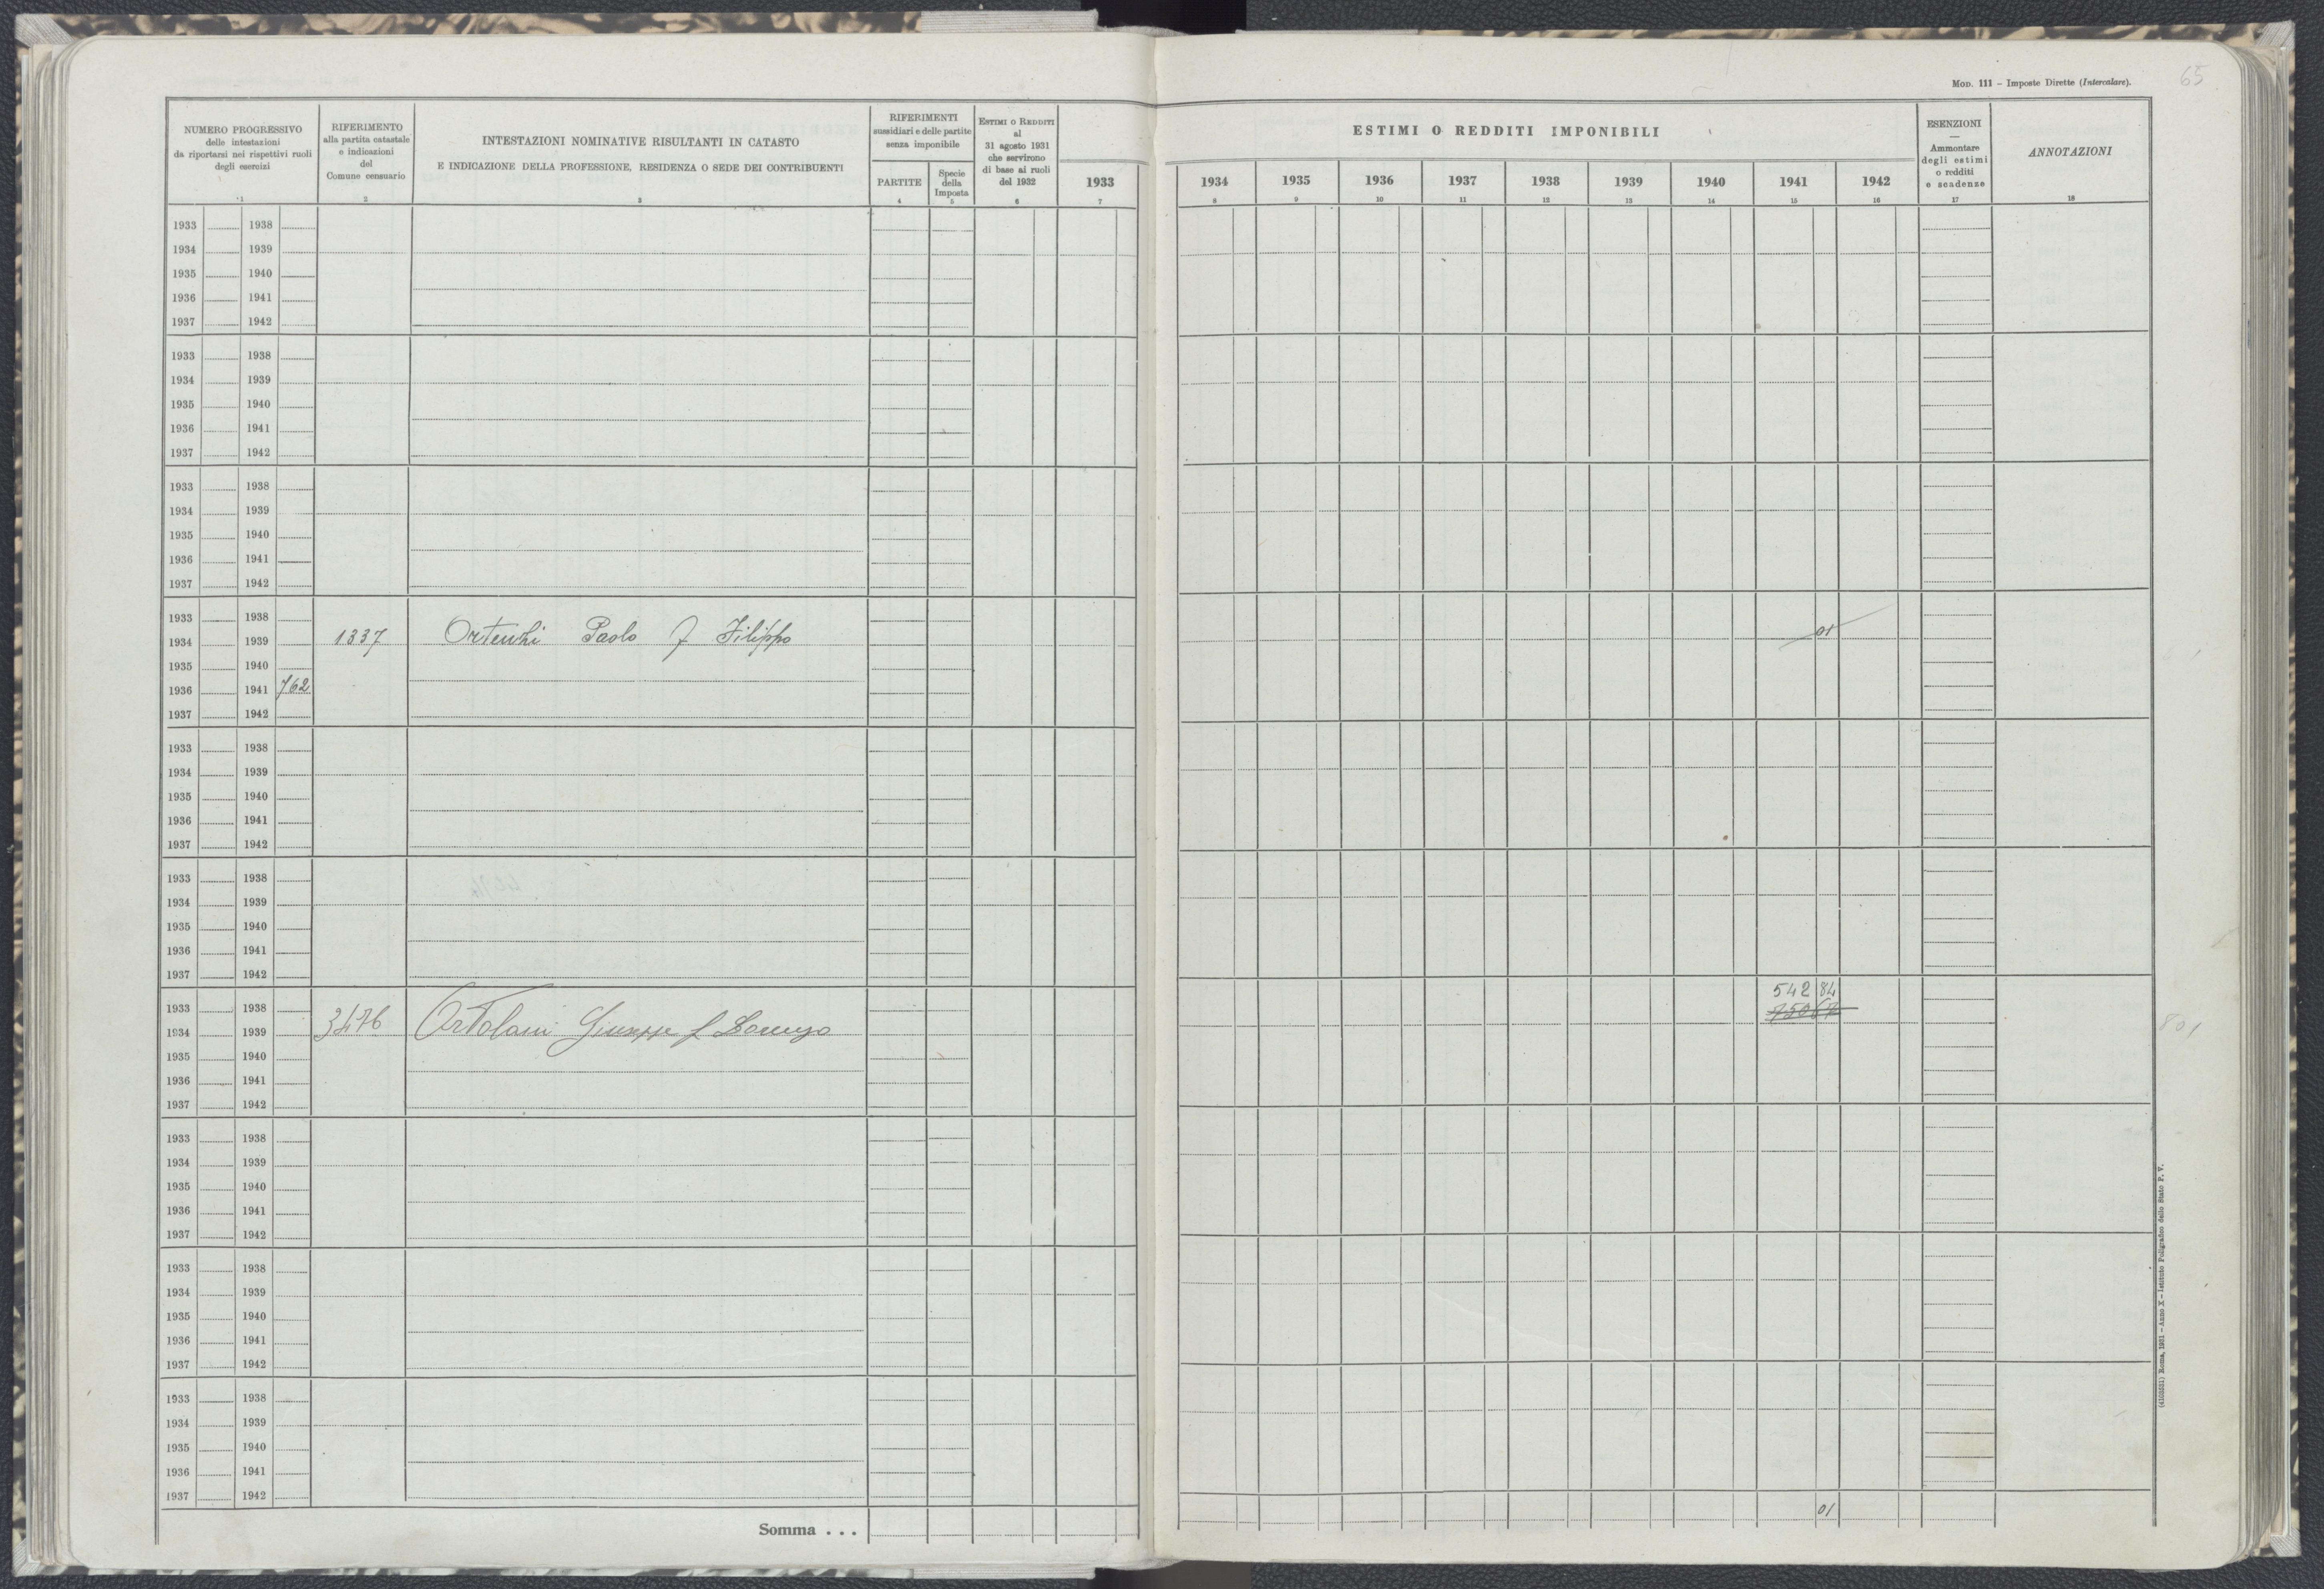 MOD. 111 – Imposte Dirette (Intercalare).
65
NUMERO PROGRESSIVO
delle intestazioni
da riportarsi nei rispettivi ruoli
degli esercizi
1
RIFERIMENTO
alla partita catastale
e indicazioni
del
Comune censuario
2
INTESTAZIONI NOMINATIVE RISULTANTI IN CATASTO
E INDICAZIONE DELLA PROFESSIONE, RESIDENZA O SEDE DEI CONTRIBUENTI
3
RIFERIMENTI
sussidiari e delle partite
senza imponibile
PARTITE
4
Specie
della
Imposta
5
ESTIMI O REDDITI
al
31 agosto 1931
che servirono
di base ai ruoli
del 1932
6
1933
7
ESTIMI O REDDITI IMPONIBILI
1934 1935 1936 1937 1938 1939 1940 1941 1942
8 9 10 11 12 13 14 15 16
ESENZIONI
—
Ammontare
degli estimi
o redditi
e scadenze
17
ANNOTAZIONI
18
1933 1938
1934 1939
1935 1940
1936 1941
1937 1942
1933 1938
1934 1939
1935 1940
1936 1941
1937 1942
1933 1938
1934 1939
1935 1940
1936 1941
1937 1942
1933 1938
1934 1939 1337 Paolo f Filippo 01
1935 1940
1936 1941 762
1937 1942
1933 1938
1934 1939
1935 1940
1936 1941
1937 1942
1933 1938
1934 1939
1935 1940
1936 1941
1937 1942
1933 1938 542 84
1934 1939 3476 Ortolani Giuseppe f Lorenzo
801
1935 1940
1936 1941
1937 1942
1933 1938
1934 1939
1935 1940
1936 1941
1937 1942
1933 1938
1934 1939
1935 1940
1936 1941
1937 1942
1933 1938
1934 1939
1935 1940
1936 1941
1937 1942
Somma . . . 01
(4103531) Roma, 1931 – Anno X – Istituto Poligrafico dello Stato P. V.